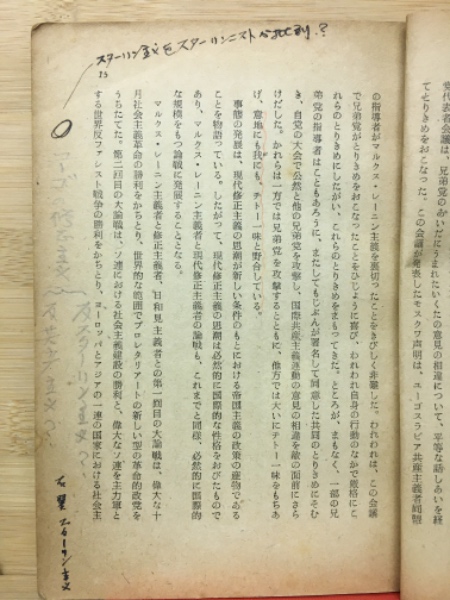 党代表者会議は、兄弟党のあいだにうまれたいくたの意見の相違について、平等な話しあいを経
てとりきめをおこなった。この会議が発表したモスクワ声明は、ユーゴスラビア共産主義者同盟
の指導者がマルクス・レーニン主義を裏切ったことをきびしく非難した。われわれは、この会議
で兄弟党がとりきめをおこなったことをひじょうに喜び、われわれ自身の行動のなかで厳格にこ
れらのとりきめにしたがい、これらのとりきめをまもってきた。ところが、まもなく、一部の兄
弟党の指導者はこともあろうに、またしてもじぶんが署名して同意した共同のとりきめにそむ
き、自党の大会で公然と他の兄弟党を攻撃し、国際共産主義運動の意見の相違を敵の面前にさら
けだした。かれらは一方では兄弟党を攻撃するとともに、他方では大いにチトー一味をもちあ
げ、意地にも我にも、チトー一味と野合している。
事態の発展は、現代修正主義の思潮が新しい条件のもとにおける帝国主義の政策の産物である
ことを物語っている。したがって、現代修正主義の思潮は必然的に国際的な性格をおびたもので
あり、マルクス・レーニン主義者と現代修正主義者の論戦も、これまでと同様、必然的に国際的
な規模をもつ論戦に発展することとなる。
マルクス・レーニン主義者と修正主義者、日和見主義者との第一回目の大論戦は、偉大な十
月社会主義革命の勝利をかちとり、世界的な範囲でプロレタリアートの新しい型の革命的政党を
うちたてた。第二回目の大論戦は、ソ連における社会主義建設の勝利と、偉大なソ連を主力軍と
する世界反ファシスト戦争の勝利をかちとり、ヨーロッパとアジアの一連の国家における社会主
スターリン主義をスターリニストが批判?
スターリン主義